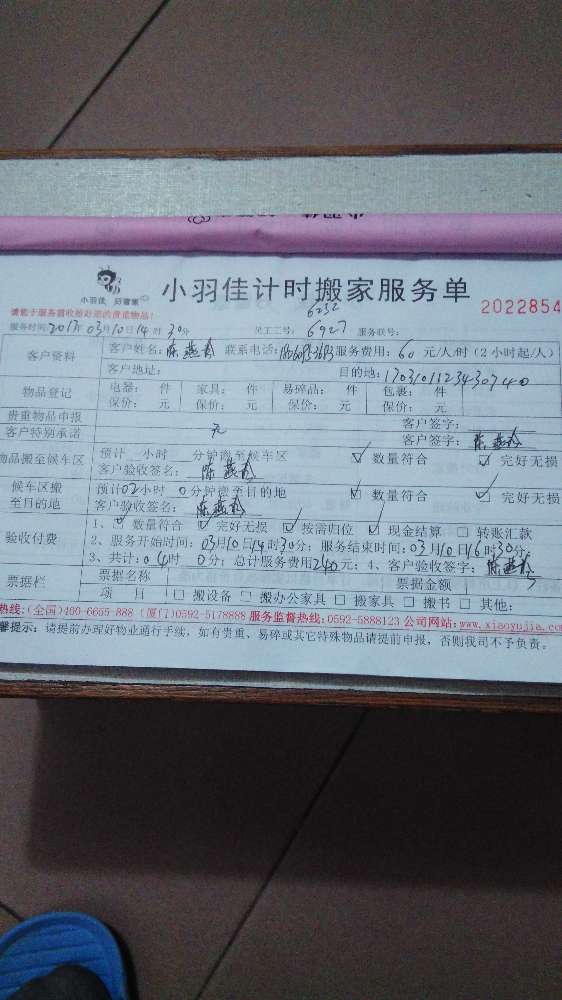 小羽佳 好管家
小羽佳计时搬家服务单
2022854
请您于服务前收拾好您的贵重物品!
6232
服务时间:2017年03月10日14时30分 员工工号:6927 服务联号:
客户资料 客户姓名: 陈燕 联系电话: 服务费用:60元/人/时(2小时起/人)
客户地址: 目的地:1703101123430740
物品登记 电器: 件 家具: 件 易碎品: 件 包裹: 件
保价: 元 保价: 元 保价: 元 保价: 元
贵重物品申报 客户签字:
客户特别承诺 无 客户签字:陈燕
物品搬至候车区 预计 小时 分钟搬至候车区 ☑ 数量符合 ☑ 完好无损
客户验收签名: 陈燕
候车区搬至目的地 预计02小时 0分钟搬至目的地 ☑ 数量符合 ☑ 完好无损
客户验收签名: 陈燕
验收付费 1、☑ 数量符合 ☑ 完好无损 ☑ 按需归位 ☑ 现金结算 □ 转账汇款
2、服务开始时间:03月10日14时30分; 服务结束时间:03月10日16时30分;
3、共计:04时 0分; 总计服务费用240元; 4、客户验收签字:陈燕
票据栏 票据名称 票据金额
项 目 □ 搬设备 □ 搬办公家具 □ 搬家具 □ 搬书 □ 其他:
热线:(全国)400-6655-888 (厦门)0592-5178888 服务监督热线:0592-5888123 公司网站:www.xiaoyujia.co
馨提示: 请提前办理好物业通行手续, 如有贵重、易碎或其它特殊物品请提前申报, 否则我司不予负责。